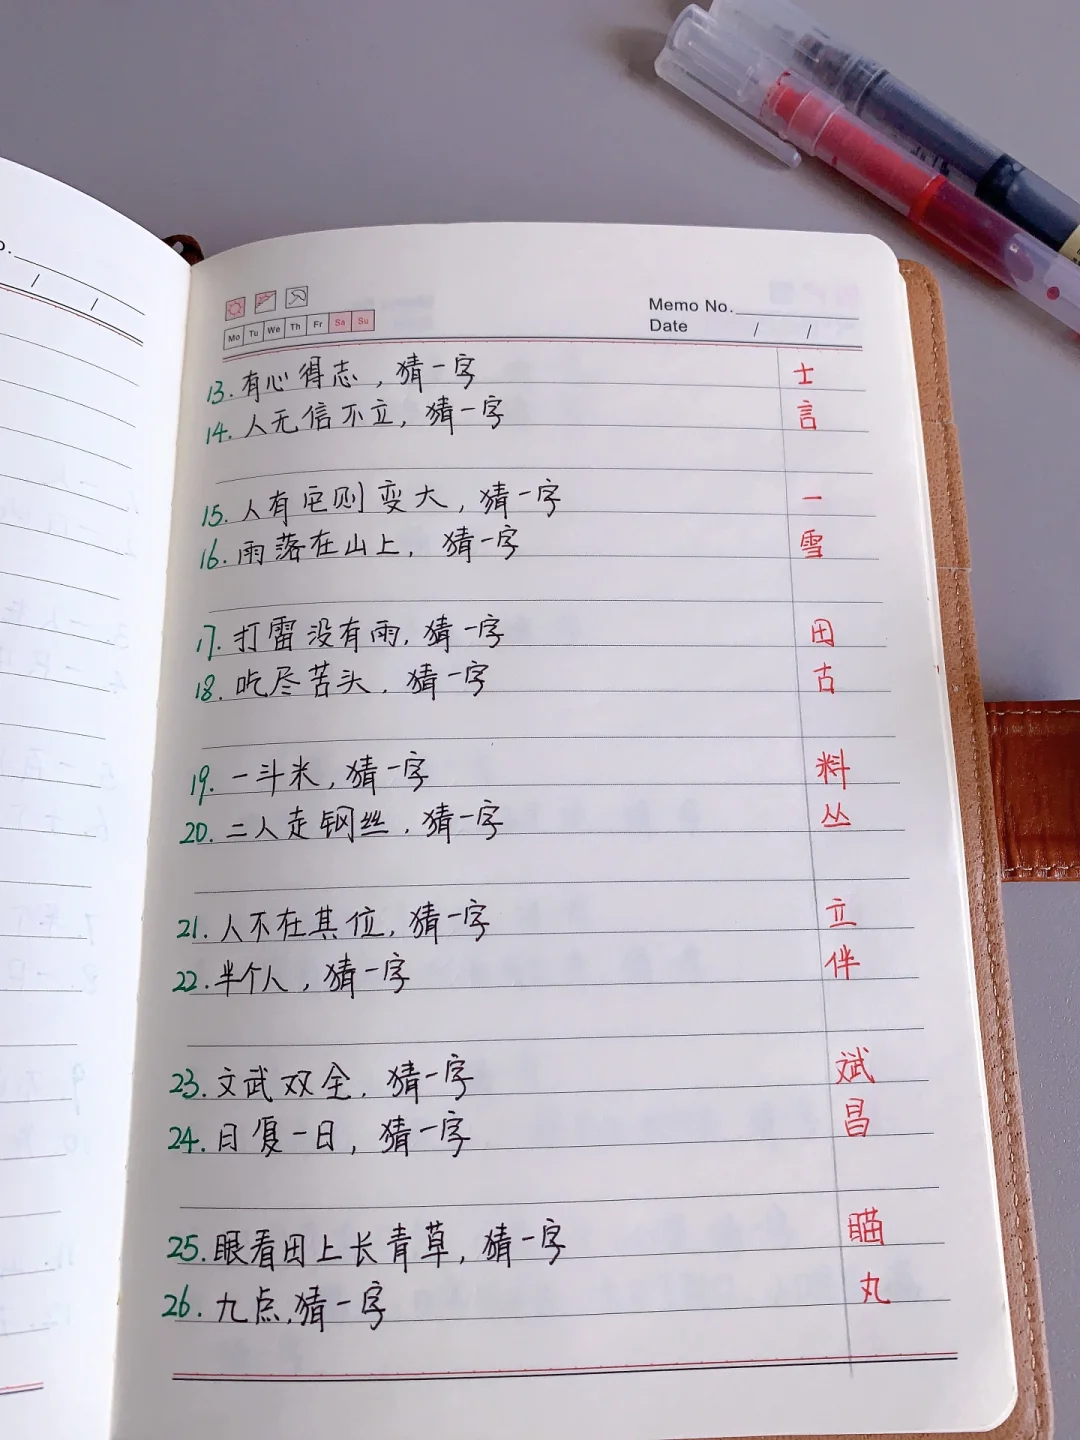 Mo Tu We Th Fr Sa Su
Memo No.
Date / /
13. 有心得志，猜一字 士
14. 人无信不立，猜一字 言
15. 人有它则变大，猜一字 一
16. 雨落在山上，猜一字 雪
17. 打雷没有雨，猜一字 田
18. 吃尽苦头，猜一字 古
19. 一斗米，猜一字 料
20. 二人走钢丝，猜一字 丛
21. 人不在其位，猜一字 立
22. 半个人，猜一字 伴
23. 文武双全，猜一字 斌
24. 日复一日，猜一字 昌
25. 眼看田上长青草，猜一字 瞄
26. 九点，猜一字 丸